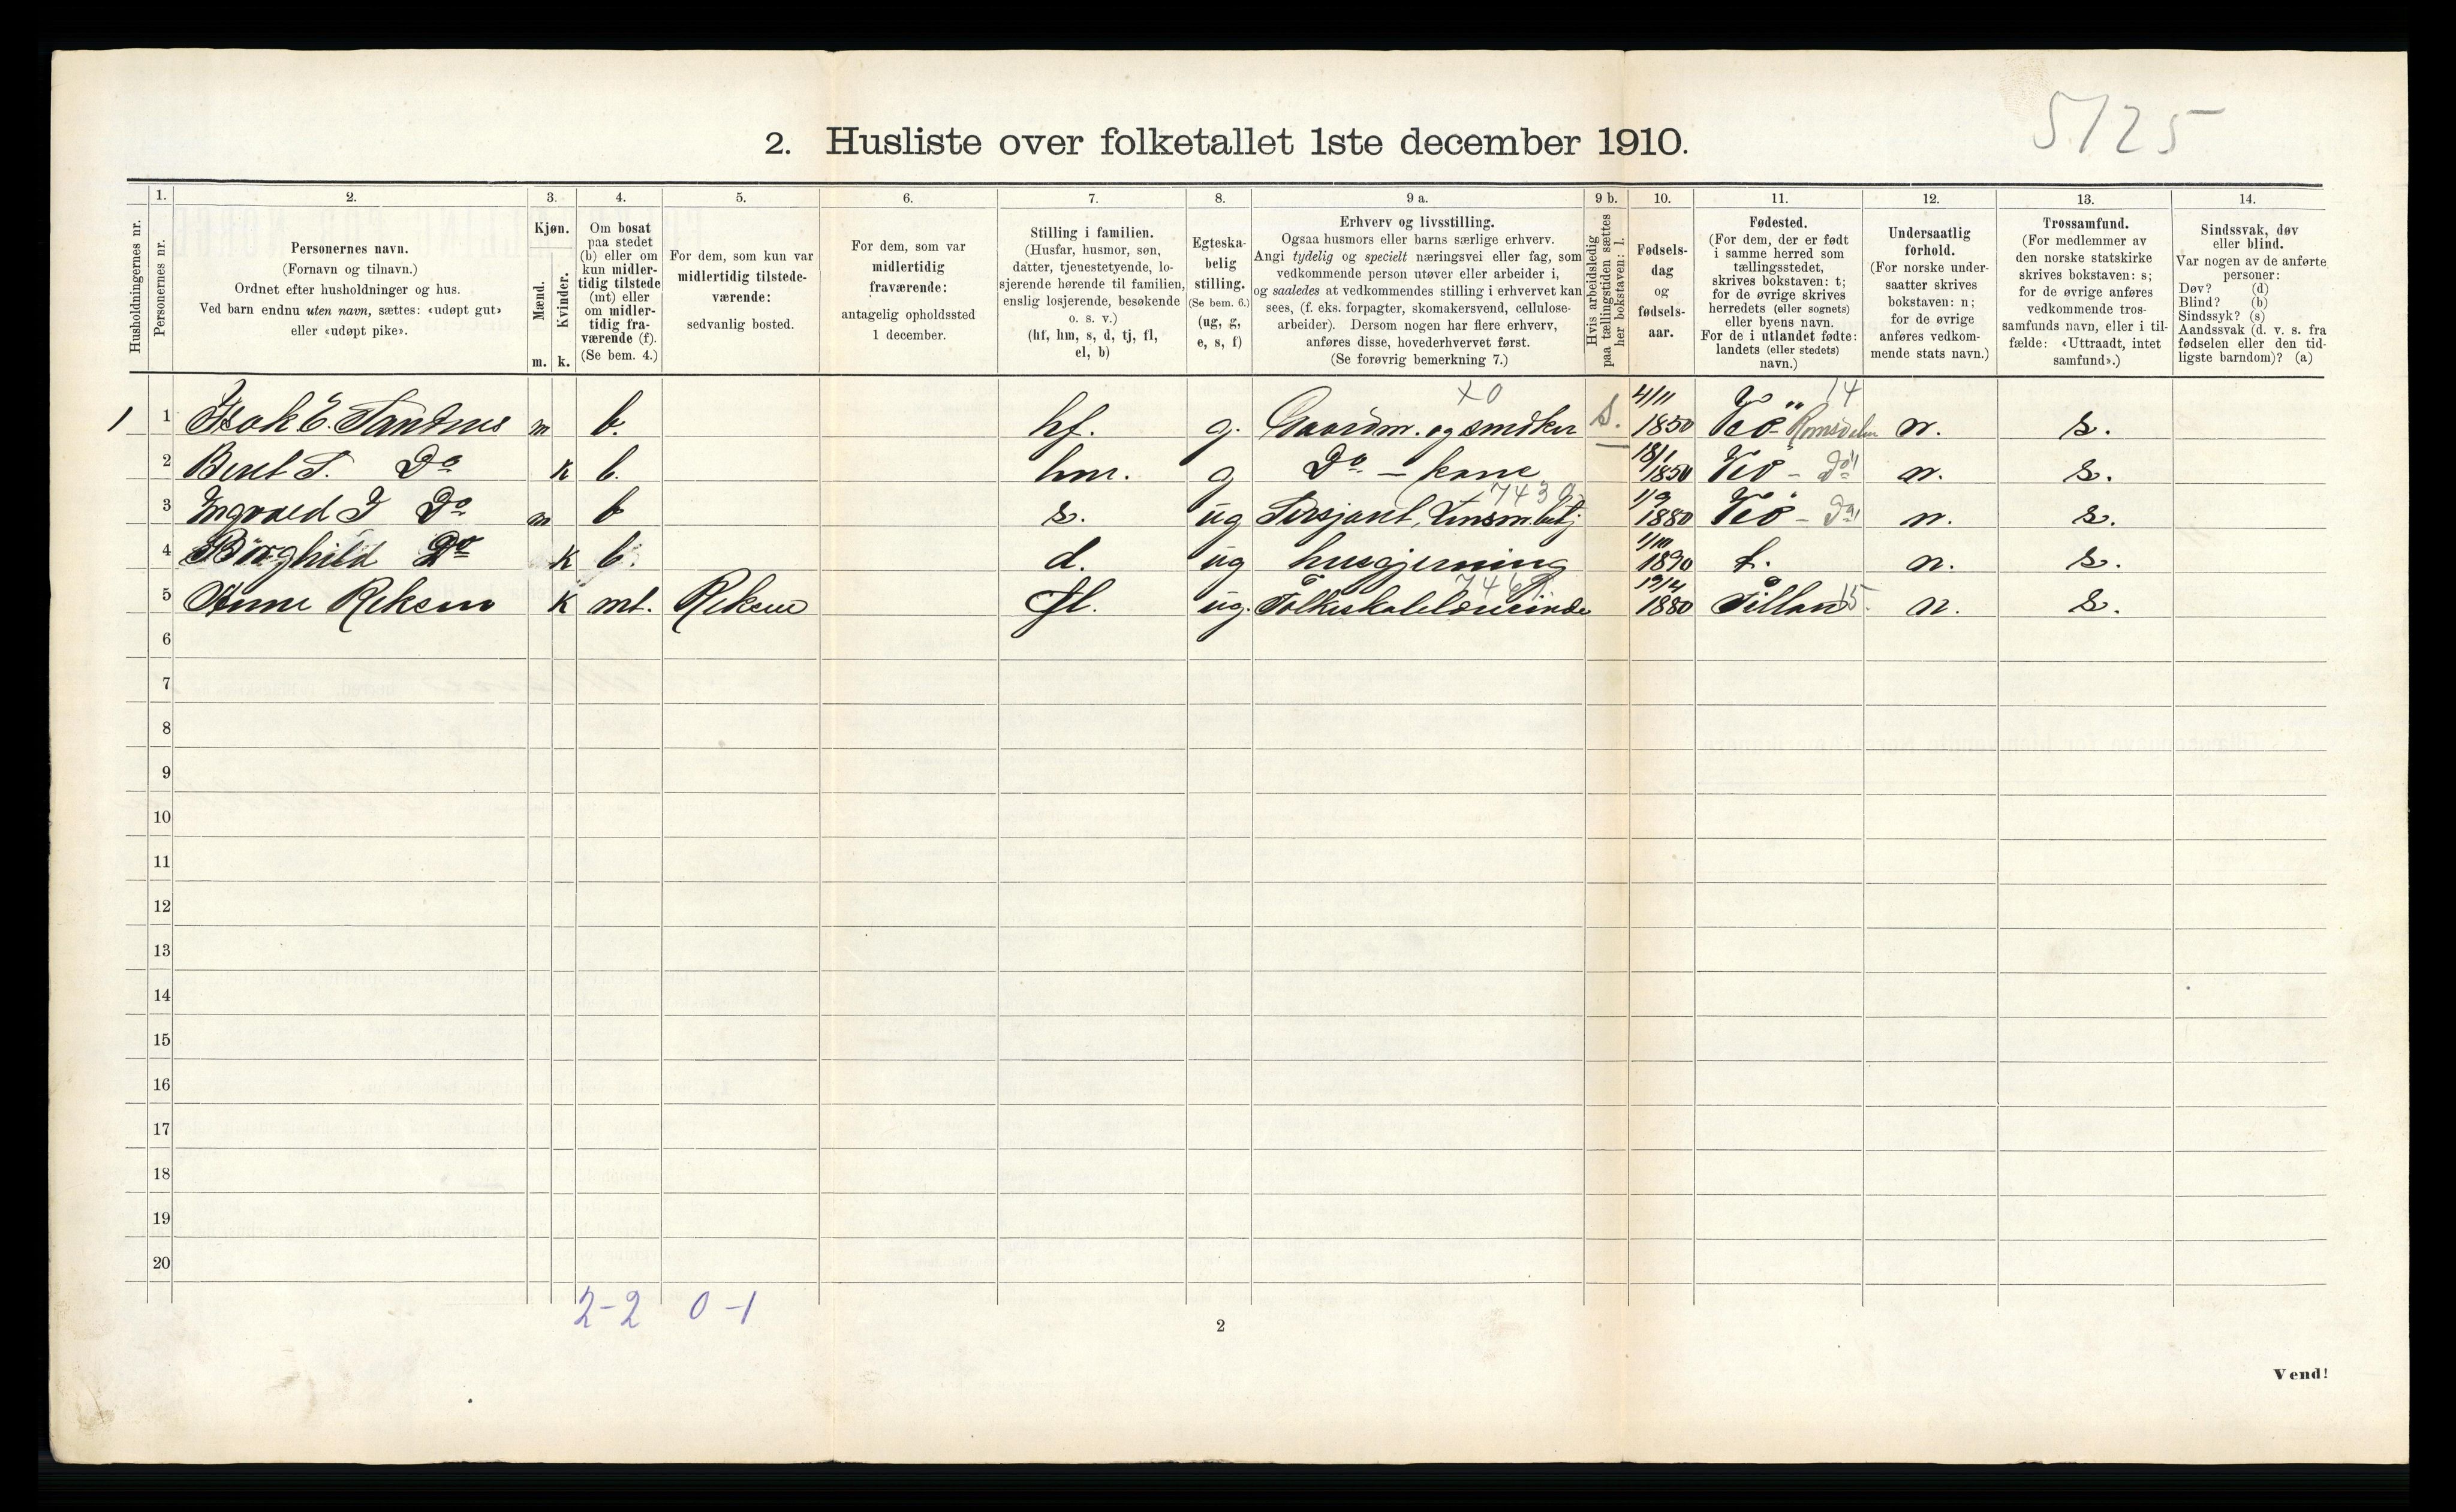 5125
2. Husliste over folketallet 1ste december 1910.
Husholdningernes nr.
1.
Personernes nr.
2.
Personernes navn.
(Fornavn og tilnavn.)
Ordnet efter husholdninger og hus.
Ved barn endnu uten navn, sættes: «udøpt gut»
eller «udøpt pike».
3.
Kjøn.
Mænd.
Kvinder.
m.
k.
4.
Om bosat
paa stedet
(b) eller om
kun midler-
tidig tilstede
(mt) eller
om midler-
tidig fra-
værende (f).
(Se bem. 4.)
5.
For dem, som kun var
midlertidig tilstede-
værende:
sedvanlig bosted.
6.
For dem, som var
midlertidig
fraværende:
antagelig opholdssted
1 december.
7.
Stilling i familien.
(Husfar, husmor, søn,
datter, tjenestetyende, lo-
sjerende hørende til familien,
enslig losjerende, besøkende
o. s. v.)
(hf, hm, s, d, tj, fl,
el, b)
8.
Egteska-
belig
stilling.
(Se bem. 6.)
(ug, g,
e, s, f)
9 a.
Erhverv og livsstilling.
Ogsaa husmors eller barns særlige erhverv.
Angi tydelig og specielt næringsvei eller fag, som
vedkommende person utøver eller arbeider i,
og saaledes at vedkommendes stilling i erhvervet kan
sees, (f. eks. forpagter, skomakersvend, cellulose-
arbeider). Dersom nogen har flere erhverv,
anføres disse, hovederhvervet først.
(Se forøvrig bemerkning 7.)
9 b.
Hvis arbeidsledig
paa tællingstiden sættes
her bokstaven: l.
10.
Fødsels-
dag
og
fødsels-
aar.
11.
Fødested.
(For dem, der er født
i samme herred som
tællingsstedet,
skrives bokstaven: t;
for de øvrige skrives
herredets (eller sognets)
eller byens navn.
For de i utlandet fødte:
landets (eller stedets)
navn.)
12.
Undersaatlig
forhold.
(For norske under-
saatter skrives
bokstaven: n;
for de øvrige
anføres vedkom-
mende stats navn.)
13.
Trossamfund.
(For medlemmer av
den norske statskirke
skrives bokstaven: s;
for de øvrige anføres
vedkommende tros-
samfunds navn, eller i til-
fælde: «Uttraadt, intet
samfund».)
14.
Sindssvak, døv
eller blind.
Var nogen av de anførte
personer:
Døv? (d)
Blind? (b)
Sindssyk? (s)
Aandssvak (d. v. s. fra
fødselen eller den tid-
ligste barndom)? (a)
x0 4/11 14
1 1 Isak E. Sandnes m b. hf. g. Gaardm. og snedker S. 1850 Veö - Romsdalen n. s.
18/1
2 Beret S. Do k b. hm. g Do - kone 1850 Veö - do n. s.
7430 1/9
3 Ingvald I Do m b s. ug Sersjant, Lensm.betj 1880 Veö - do n. s.
1/10
4 Borghild Do k b. d. ug husgjerning 1890 t. n. s.
746 19/12
5 Anne Reksen k mt. Reksen fl. ug. Folkeskolelærerinde 1880 Tillan 15. n. s.
6
7
8
9
10
11
12
13
14
15
16
17
18
19
20
2-2 0-1
2
Vend!